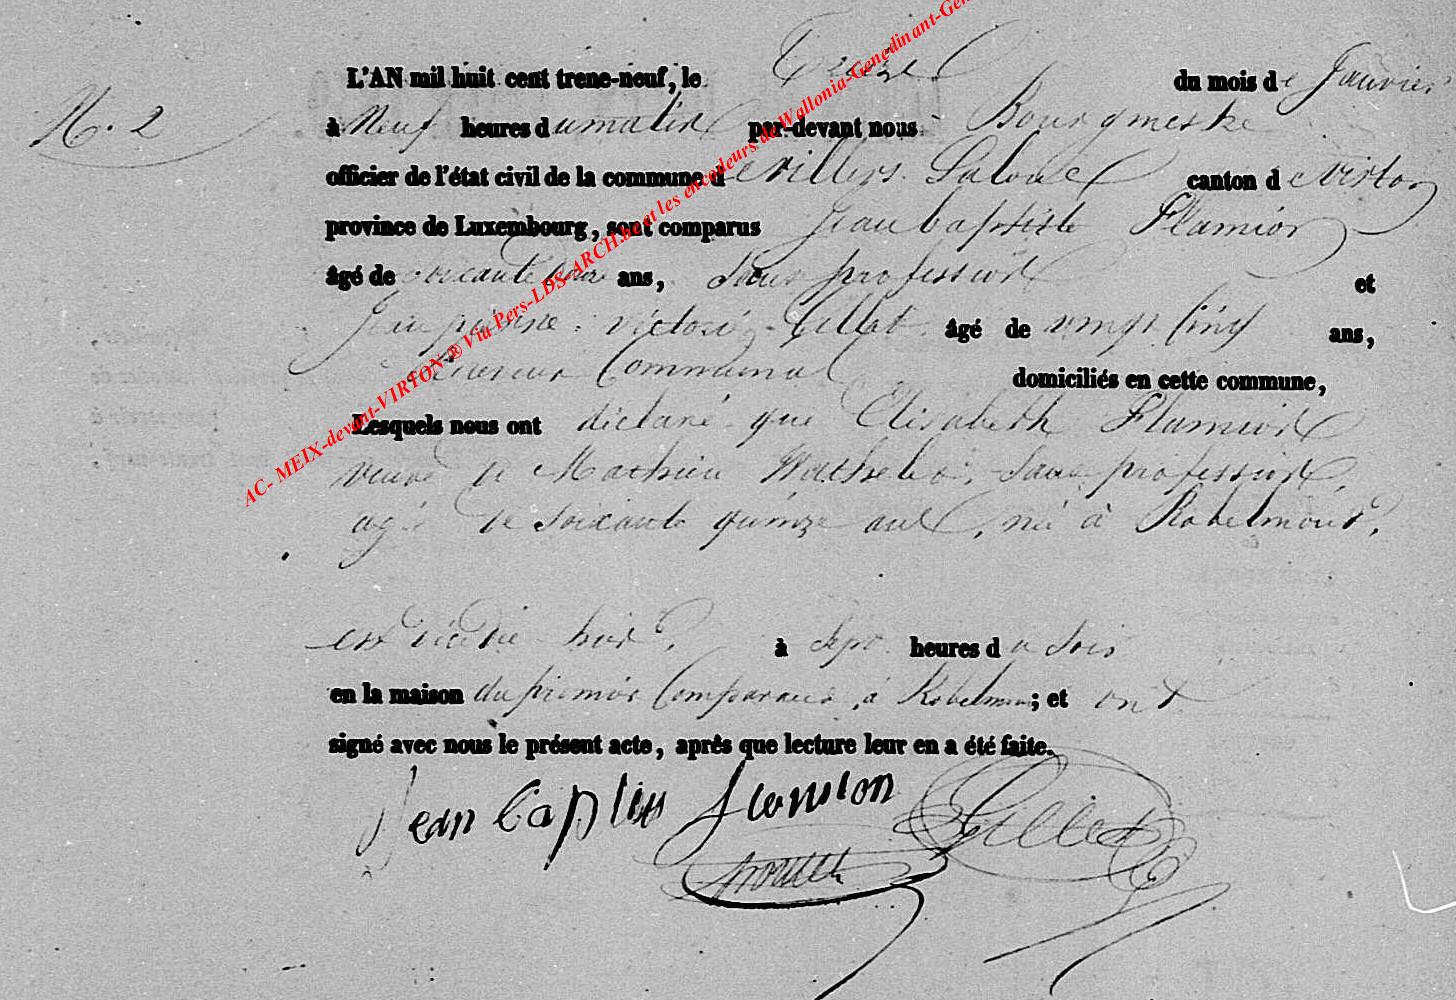 N. 2
L'AN mil huit cent trene-neuf, le Treize du mois de Janvier
à Neuf heures du matin par-devant nous Bourgmestre
officier de l'état civil de la commune de Villers Laloue canton de Virton
province de Luxembourg, sont comparus Jean baptiste Flamion
âgé de soixante ans, Sans profession et
Jean pierre victoré Gillet âgé de vingt cinq ans,
receveur Communal domiciliés en cette commune,
Lesquels nous ont déclaré que Elisabeth Flamion
veuve de Mathieu Wathelet, Sans profession,
agé de Soixante quinze ans, né à Robelmont,
est décédé hier, à Sept heures du Soir
en la maison du premier Comparant, à Robelmont; et ont
signé avec nous le présent acte, après que lecture leur en a été faite.
Jean baptiste flamion Gillet
AC- MEIX-devant-VIRTON ® Via Pers-LDS-ARCH.be et les encodeurs de Wallonia-Genedinant-Gen